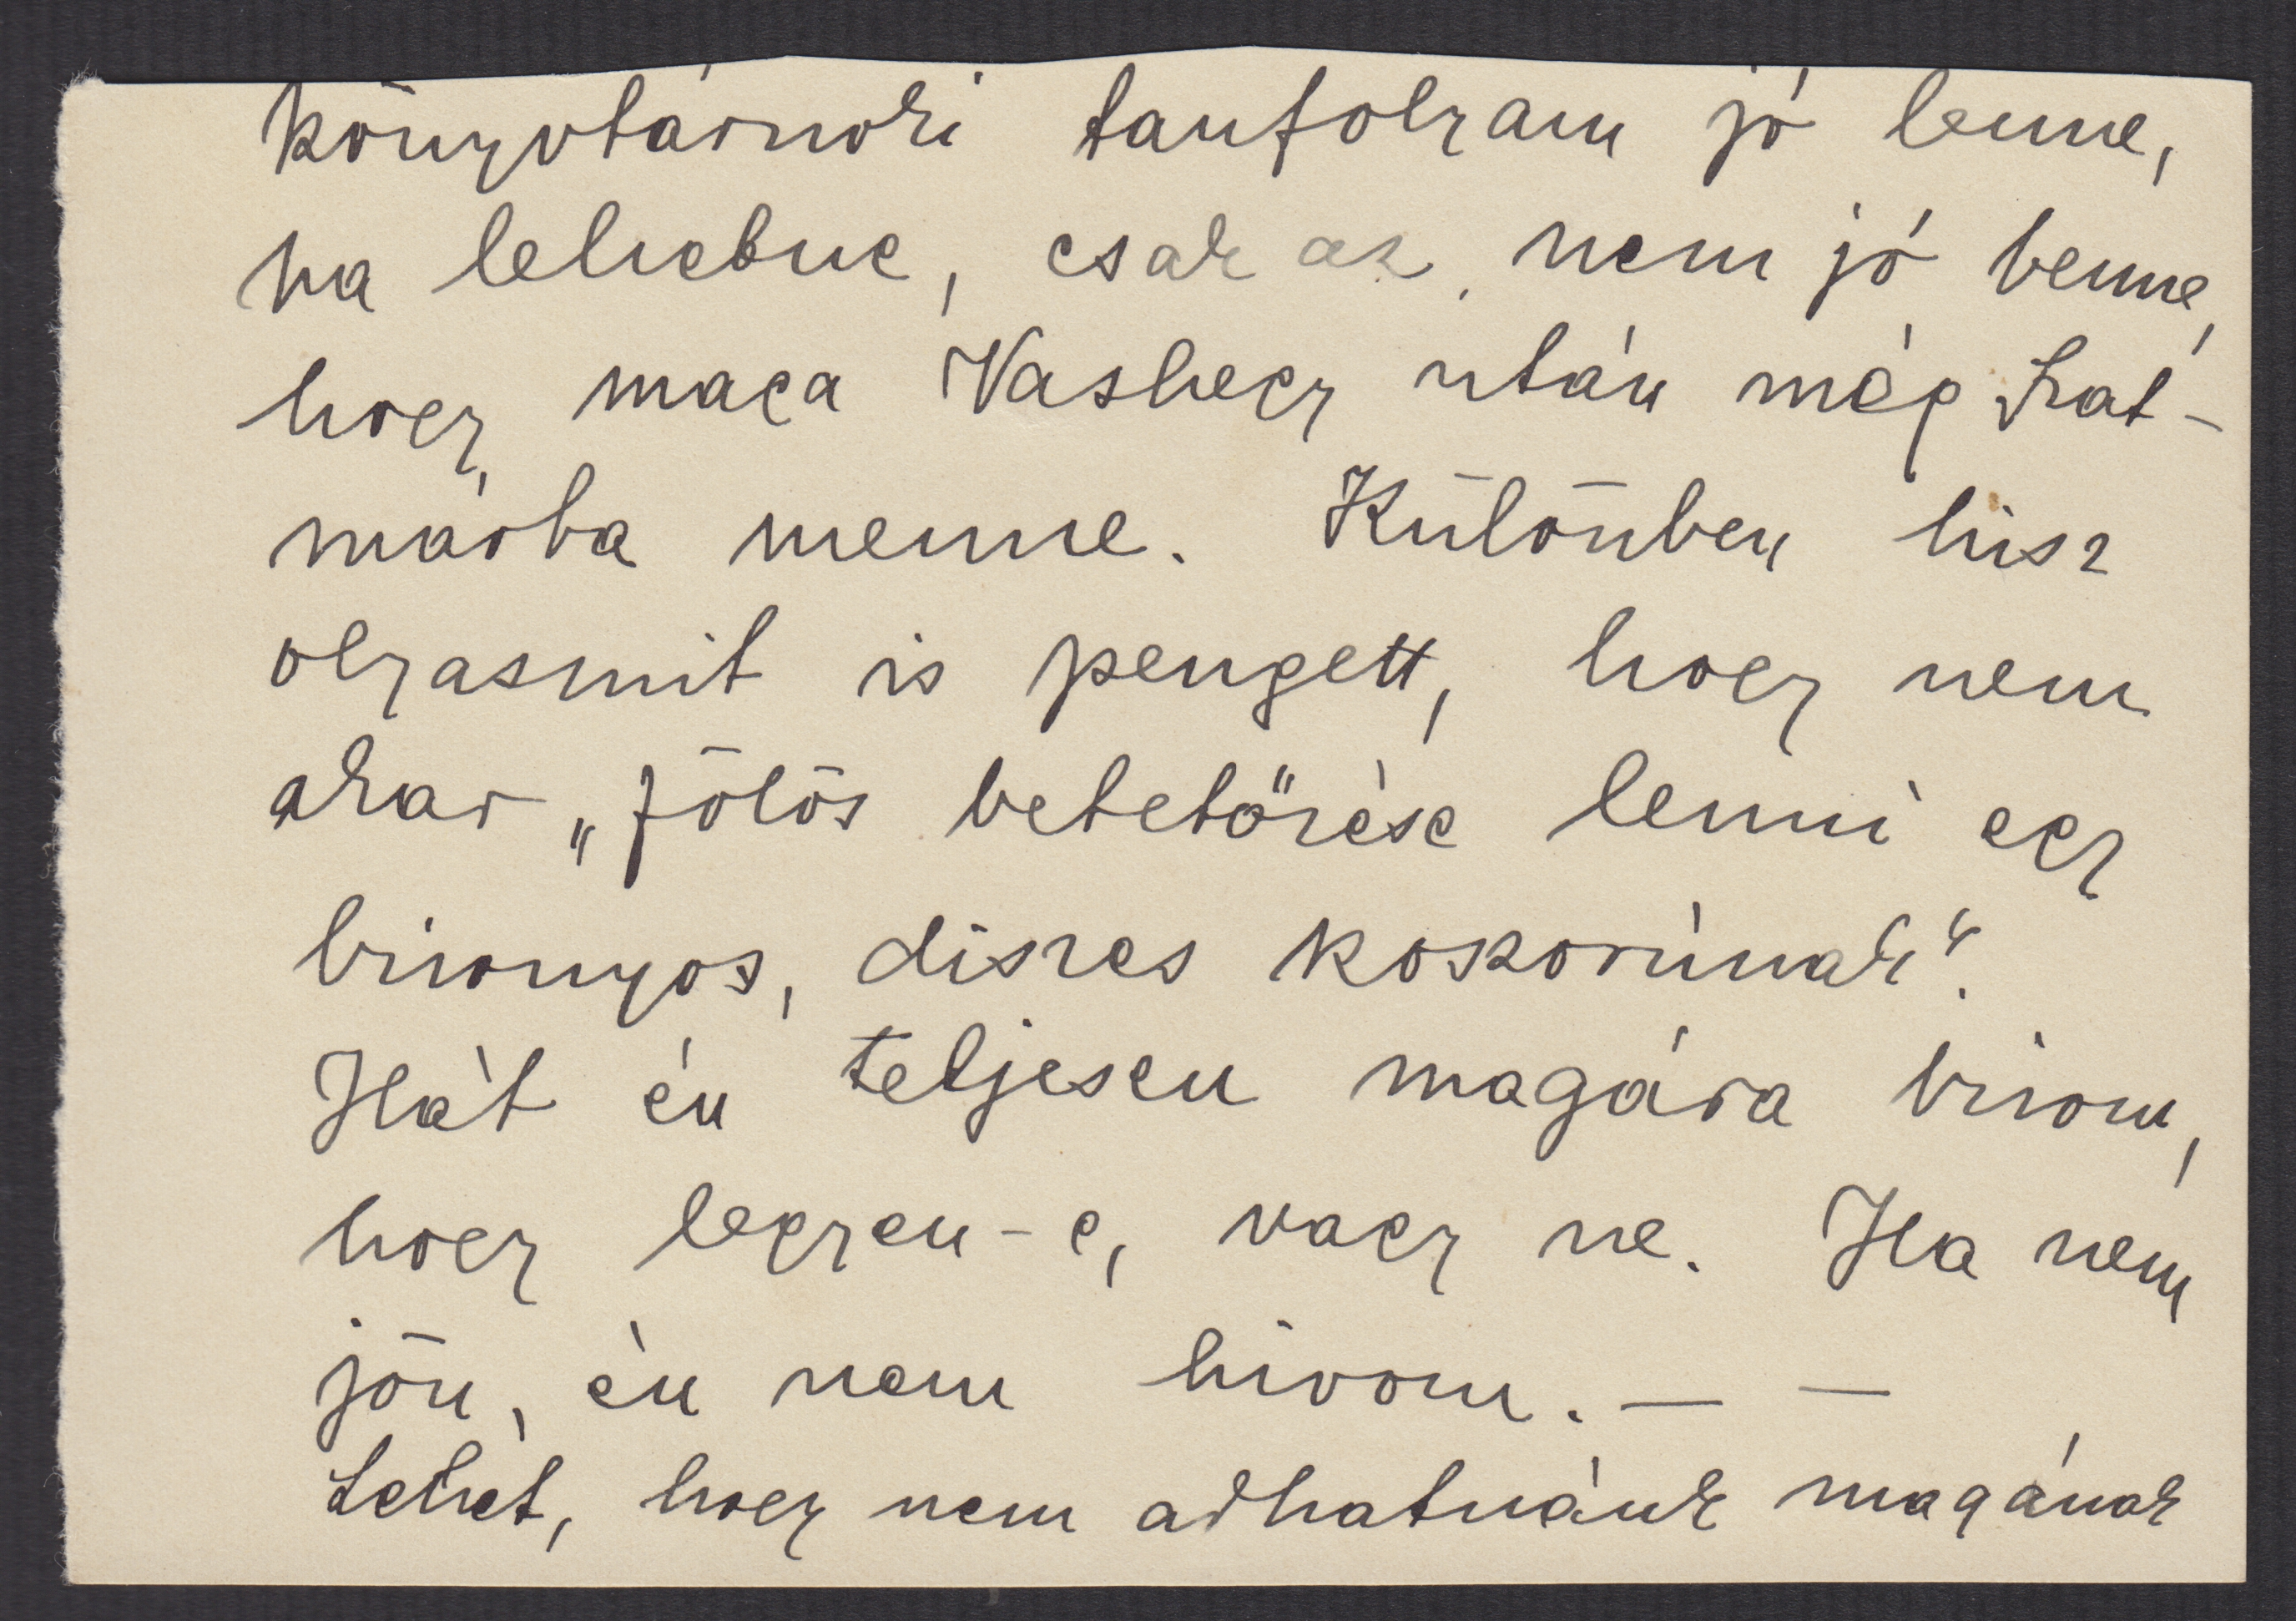 könyvtárnoki tanfolyam jó lenne,
ha lehetne, csak az nem jó benne,
hogy maga Vashegy után még Rat-
márba menne. Különben hisz
olyasmit is pengett, hogy nem
akar „fölös betetőzése lenni egy
bizonyos, díszes koszorúnak".
Hát én teljesen magára bízom,
hogy legyen-e, vagy ne. Ha nem
jön, én nem hívom. — —
Lehet, hogy nem adhatnánk magának